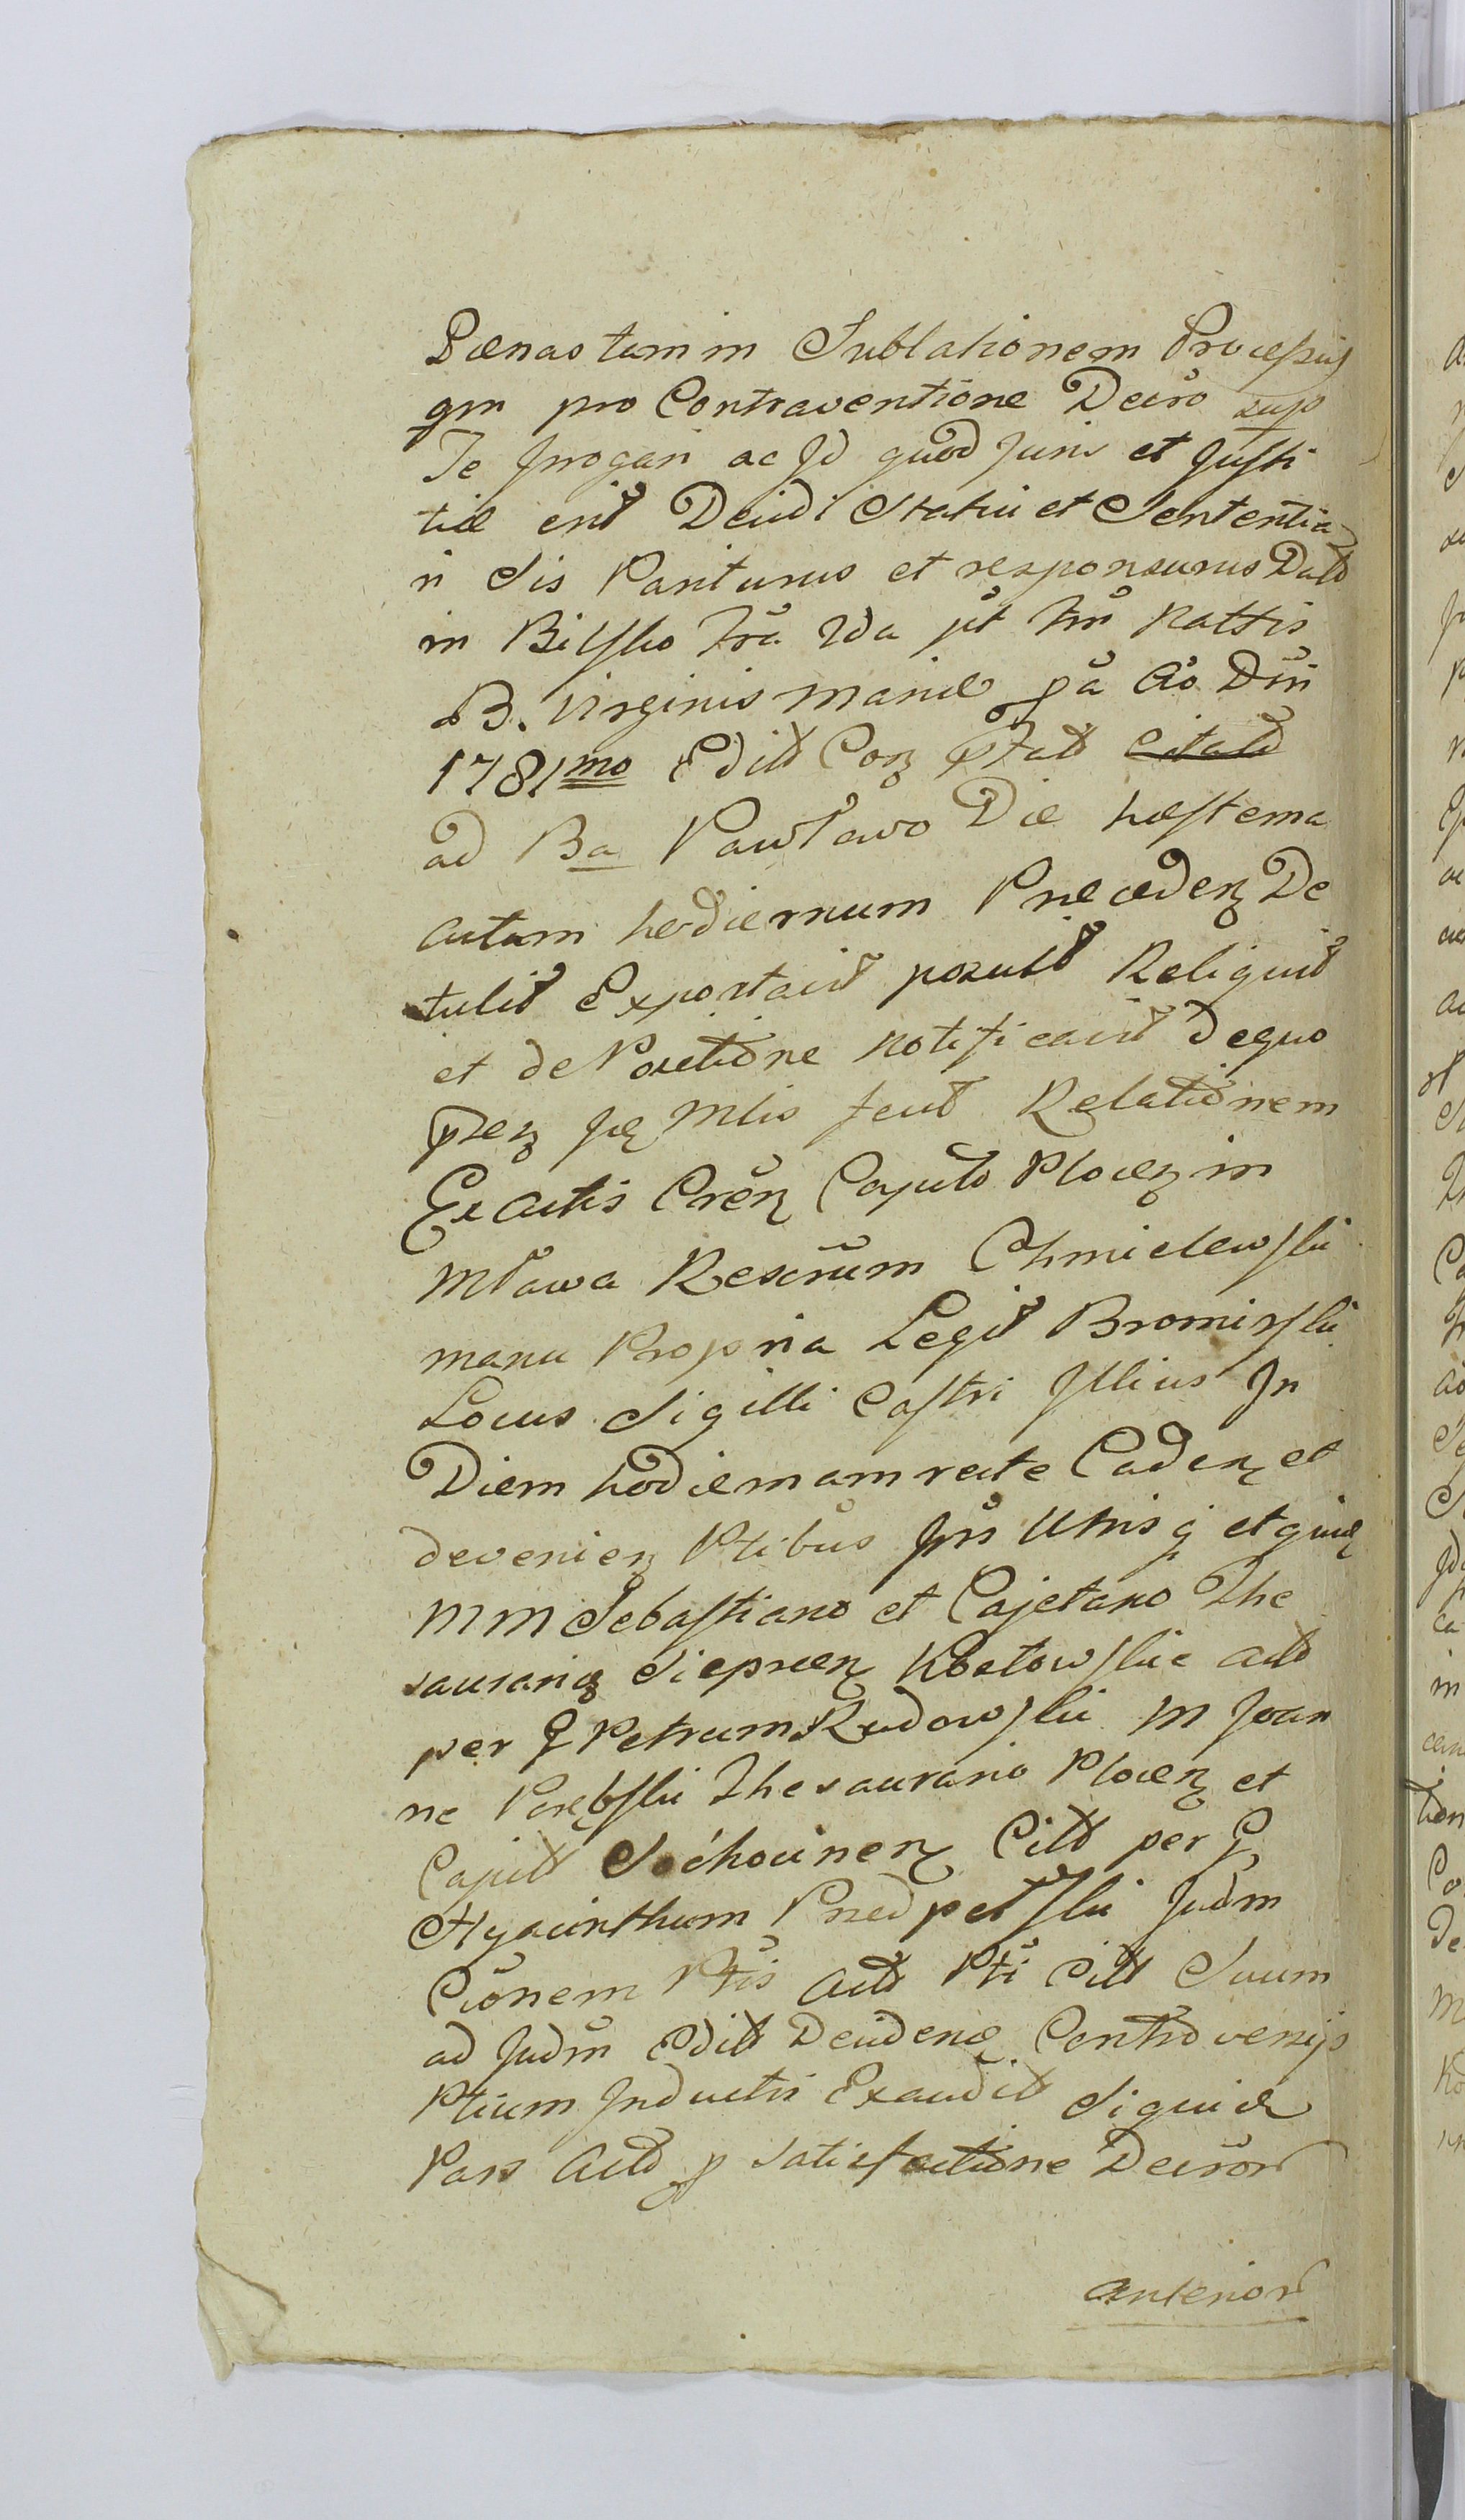 Pænas tam in Sublationem Processus
qm pro Contraventione Decro sup
Te Irrogari ac Id quod Juris et Justi
tiæ erit Decidi Statui et Sententia
ri Sis Pariturus et responsurus Datt
in Bilsko Fra 2da pt Fm Nattis
B. Virginis Mariæ pa Ao Dni
1781mo Editt Corz Pntatt
ad Ba Pawłowo Die hæsterna
actum hodiernum Præceden De
tulit Exportavit posuit Reliquit
et de Positione notificavit de quo
Prez suæ Mtis fecit Relationem
Ex Actis Cren Capitt Plocen in
Mława Rescrium Chmielewski
manu Propria Legit Bromirski
Locus Sigilli Castri Illius In
Diem hodiernam recte Caden et
devenien Ptibus Iris Utrisq et quidæ
MM Sebastiano et Cajetano The
saurariz Sieprcen Kosłowskie Actt
per G Petrum Rudowski M Joan
ne Porębski Thesaurario Plocen et
Capitt Sochocinen Citt per G
Hyacinthum Przedpełski Judm
Cionem Ptis Actt Pti Citt Suum
ad Judm Editt Decidend Controversijs
Ptium Inductis Exauditt Siquidæ
Pars Actt p satisfactione Decror
anterior